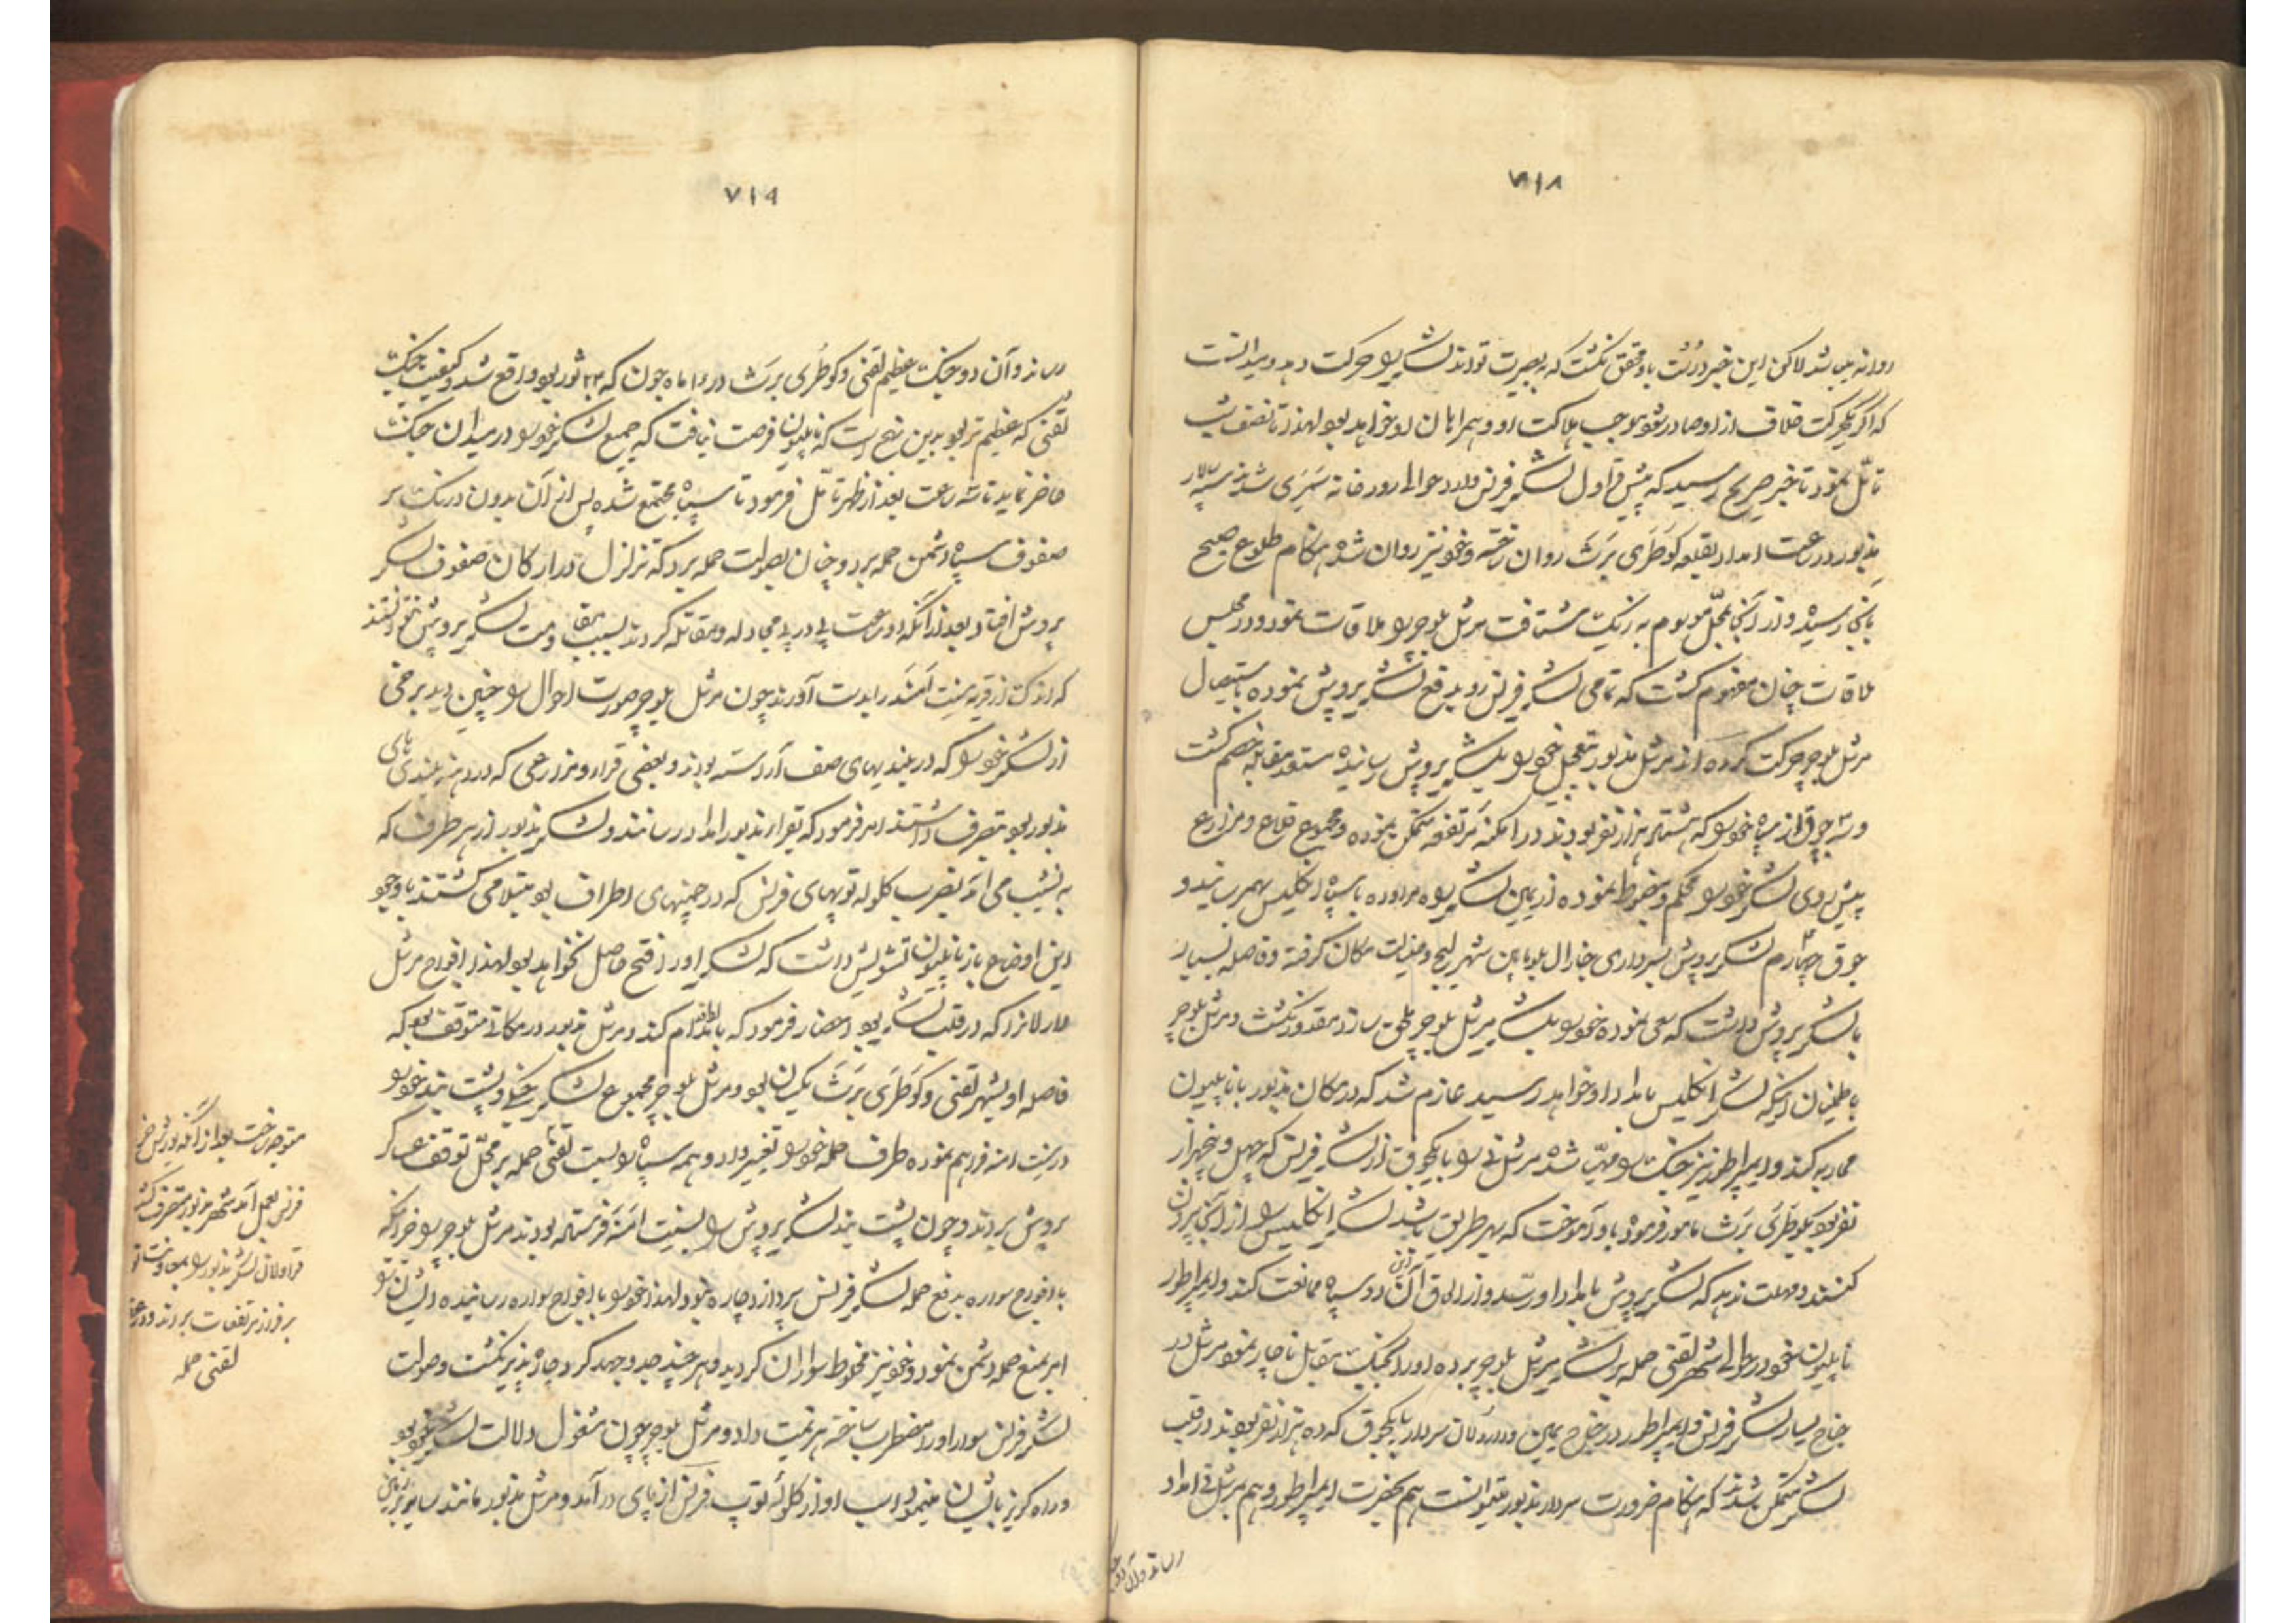 ۷۱۸
روانه میباشد لاکن این خبر درست باو محقق نگشت که به بصیرت تواند لشکر را حرکت دهد و میدانست
که اگر حرکت خلاف از او صادر شود موجب هلاکت او و همراهان او خواهد بود لهذا تا نصف شب
تأمّل نمود تا خبر صریح رسید که پیش قراول لشکر فرنس وارد حوالی رودخانه شدند سپهسالار
مذبور در ساعت امداد بقلعه کوَطَری بَرَث روان ساخته و خود نیز روان شده هنگام طلوع صبح
بآنجا رسیده و از آنجا بمحلّ موسوم به شتافت مرشل بلوچر را ملاقات نمود و در مجلس
ملاقات چنان مفهوم گشت که تمامی لشکر فرنس رو بدفع لشکر پروش نموده باستیصال
مرشل بلوچر حرکت کرده اند مرشل مذبور بتعجیل خود را بلشکر پروش رسانیده مستعد مقابله خصم گشت
و سه جوق از سپاه خود را که هشتاد هزار نفر بودند در امکنه مرتفعه متمکن نموده و مجموع قلاع و مزارع
پیش روی لشکر خود را محکم و مضبوط نموده از یمین لشکر راه مراوده با سپاه انگلیس بهم رسانید و
جوق چهارم لشکر پروش بسرداری جنرال بلو مابین شهر لیج و مکان گرفته و فاصله بسیار
بلشکر پروش داشت که سعی نموده خود را بلشکر مرشل بلوچر ملحق سازد مقدور نگشت و مرشل بلوچر
باطمینان اینکه لشکر انگلیس بامداد او خواهد رسید عازم شد که در مکان مذبور با ناپلیون
محاربه کند و ایمپراطور نیز جنگ را مهیّا شده مرشل نی را با یکجوق از لشکر فرنس که چهل و پنجهزار
نفر بود بکوطَری بَرَث مامور فرمود باو آموخت که بهر طریق باشد لشکر انگلیس را از آنجا بیرون
کنند و مهلت ندهد که لشکر پروش بامداد او رسد و از الحاق آن دو سپاه ممانعت کند و ایمپراطور
ناپلیون خود در حوالی شهر لقنی حمله بر لشکر مرشل بلوچر برده او را بجنگ مقابل ناچار نمود مرشل در
جناح یسار لشکر فرنس و ایمپراطور در جناح یمین و سردار با یکجوق که ده هزار نفر بودند در قلب
لشکر متمکن شدند که هنگام ضرورت سردار مذبور میتوانست هم بحضرت ایمپراطور و هم بمرشل نی امداد
رساند و آن دو
۷۱۹
رساند و آن دو جنگ عظیم لقنی و کوطَری بَرَث در ۱۵ ماه جون که ۲۴ ثور بود واقع شد و کیفیت جنگ
لقنی که عظیم تر بود بدین نهج است که ناپلیون فرصت نیافت که جمیع لشکر خود را در میدان جنگ
حاضر نماید تا سه ساعت بعد از ظهر تأمّل فرمود تا سپاه مجتمع شده پس از آن بدون درنگ بر
صفوف سپاه دشمن حمله برد و چنان بصولت حمله برد که تزلزل در ارکان صفوف لشکر
پروش افتاد بعد از آنکه دو ساعت پی در پی مجادله و مقاتله کردند بسبب مقاومت لشکر پروش نتوانستند
که اندک از قریه سِنِت اَمَند را بدست آورند چون مرشل بلوچر صورت احوال را چنین دید برخی
از لشکر خود را که در بلندیهای صف آراسته بودند و بعضی قرا و مزارعی که در دامنه بلندی های
مذبور بود متصرف داشتند امر فرمود که بقراء مذبور امداد رسانند و لشکر مذبور از هر طرف که
به نشیب می آمد بضرب گلوله توپهای فرنس که در چمنهای اطراف بود مبتلا می گشتند با وجود
این اوضاع باز ناپلیون تشویش داشت که لشکر او را فتح حاصل نخواهد بود لهذا افواج مرشل
را که در قلب لشکر بود احضار فرمود که بآنطرف اقدام کند و مرشل مذبور در مکانی متوقف بود که
فاصله او بشهر لقنی و کوَطَری بَرَث یکسان بود و مرشل بلوچر مجموع لشکر جنگی و پشت بند خود را
در سِنِت امنه فراهم نموده طرف حمله خود را تغییر داد و همه سپاه را بسمت لقنی حمله بر محلّ توقف عساکر
پروش بردند و چون پشت بند لشکر پروش را بسِنِت اَمَنَه فرستاده بودند مرشل بلوچر را جز آنکه
با افواج سواره بدفع حمله لشکر فرنس پردازد چاره نبود لهذا خود را با افواج سواره رسانیده ایشان را
امر بمنع حمله دشمن نمود و خود نیز مخلوط سواران گردید و هر چند جد و جهد کرد چاره پذیر نگشت و صولت
لشکر فرنس سوار او را مضطرب ساخته هزیمت داد و مرشل بلوچر چون مشغول دلالت لشکر خود بود
و راه گریز بایشان مینمود اسب او از گلوله توپ فرنس از پای در آمد و مرشل مذبور مانند سایر بر زمین
متوجه ساخت بعد از آنکه یورش
فرنس بعمل آمد شهر مذبور متصرف گشته
قراولان لشکر مذبور را
بر فراز مرتفعات بردند و در
لقنی حمله